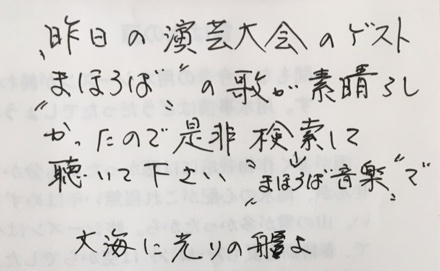 昨日の演芸大会のゲスト
"まほろば"の歌が素晴らし
かったので是非検索して
聴いて下さい
↳"まほろば音楽"で
大海に光りの艦よ